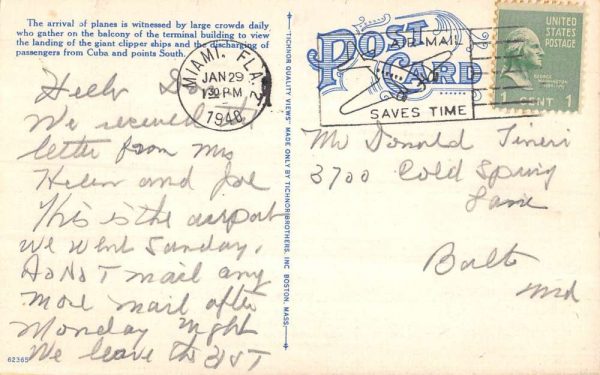 The arrival of planes is witnessed by large crowds daily
who gather on the balcony of the terminal building to view
the landing of the giant clipper ships and the discharging of
passengers from Cuba and points South.
Hello
We received
letter from Mrs
Helen and Joe
This is the airport
we went Sunday.
Do Not mail any
more mail after
Monday night
We leave the 31ST
62365
TICHNOR QUALITY VIEWS" MADE ONLY BY TICHNOR BROTHERS, INC. BOSTON, MASS.
MIAMI, FLA. 2
JAN 29
130 PM
1948
POST CARD
AIR MAIL
SAVES TIME
UNITED
STATES
POSTAGE
GEORGE
WASHINGTON
CENT 1
Mr Donald
3700 Cold Spring
Lane
Balto
Md